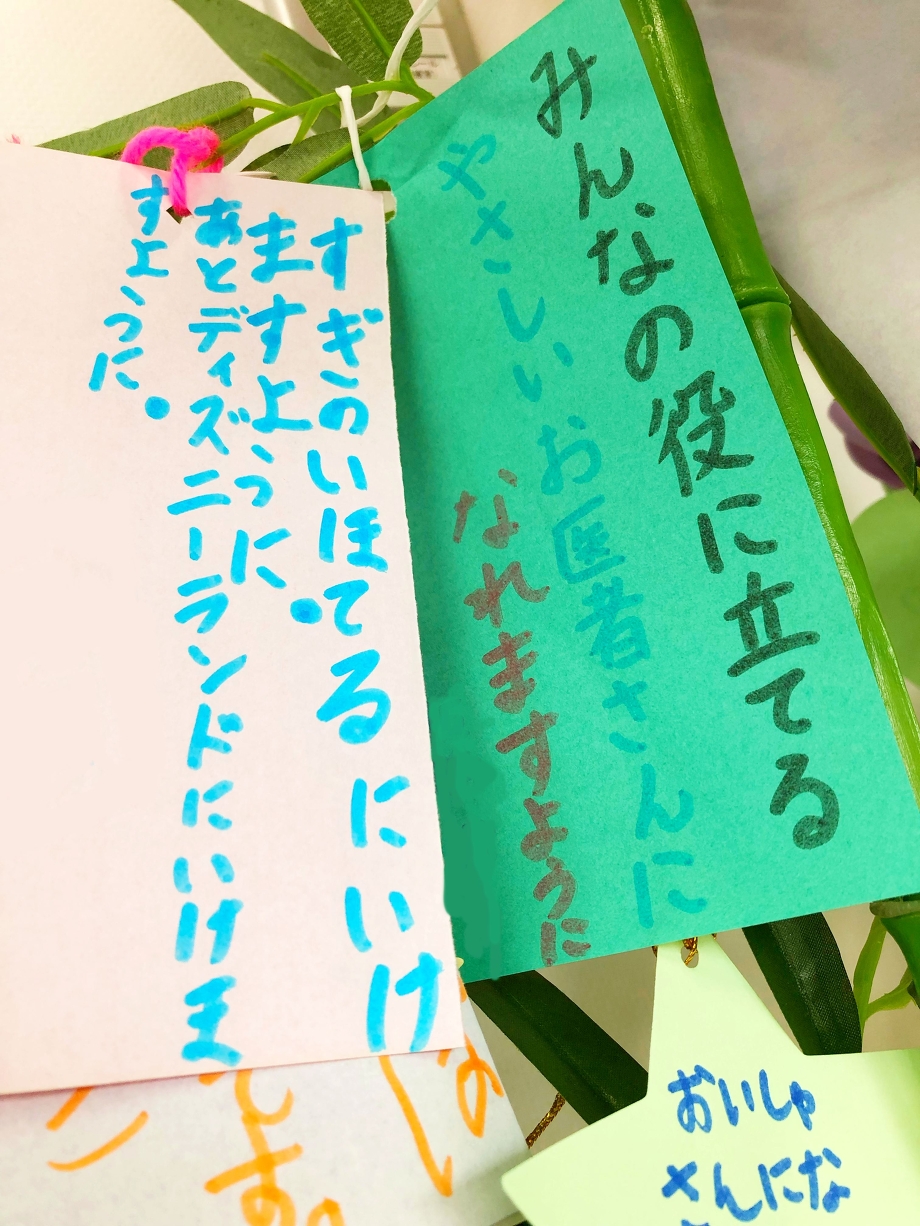 みんなの役に立てる
やさしいお医者さんに
なれますように
すぎのいほてるにいけ
ますように。
あとディズニーランドにいけま
すように。
おいしゃ
さんにな